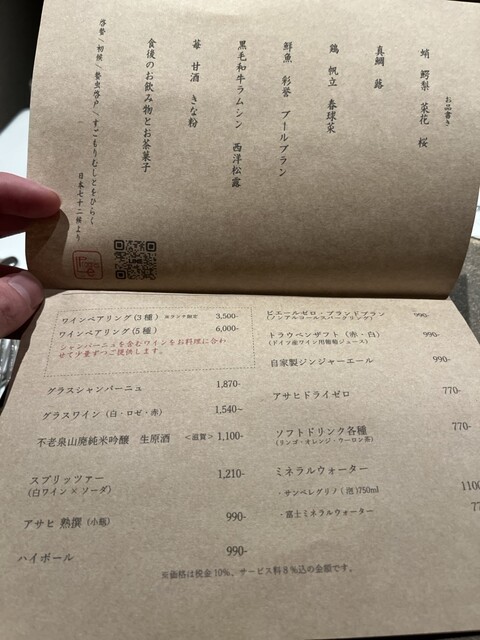 お品書き
蛸 鰐梨 菜花 桜
真鯛 蕗
鶏 帆立 春球菜
鮮魚 彩誉 ブールブラン
黒毛和牛ラムシン 西洋松露
苺 甘酒 きな粉
食後のお飲み物とお茶菓子
啓蟄/初候/蟄虫啓戸/すごもりむしとをひらく
日本七十二候より
ワインペアリング(3種) ※ランチ限定 3,500-
ワインペアリング(5種) 6,000-
シャンパーニュを含むワインをお料理に合わ
せて少量ずつご提供します。
グラスシャンパーニュ 1,870-
グラスワイン (白・ロゼ・赤) 1,540~
不老泉山廃純米吟醸 生原酒 <滋賀> 1,100-
スプリッツァー 1,210-
(白ワイン×ソーダ)
アサヒ 熟撰 (小瓶) 990-
ハイボール 990-
ピエールゼロ・ブランドブラン 990-
(ノンアルコールスパークリング)
トラウベンザフト (赤・白) 990-
(ドイツ産ワイン用葡萄ジュース)
自家製ジンジャーエール 990-
アサヒドライゼロ 770-
ソフトドリンク各種 770-
(リンゴ・オレンジ・ウーロン茶)
ミネラルウォーター
・サンペレグリノ(泡)750ml 1100
・富士ミネラルウォーター 77
※価格は税金10%、サービス料8%込の金額です。